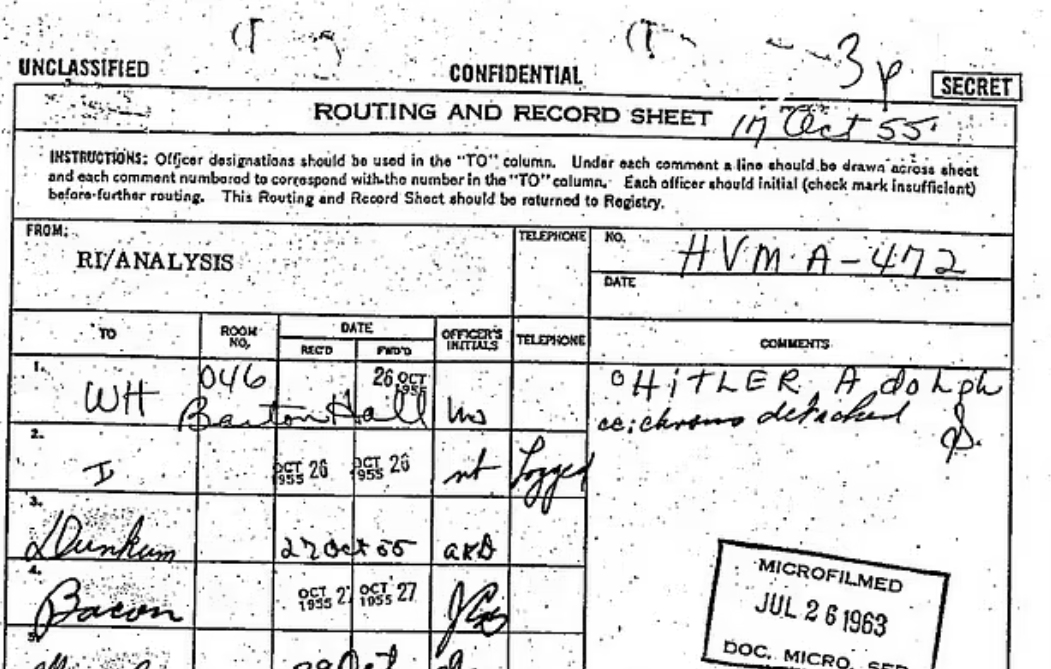 3p
UNCLASSIFIED CONFIDENTIAL SECRET
ROUTING AND RECORD SHEET 17 Oct 55
INSTRUCTIONS: Officer designations should be used in the "TO" column. Under each comment a line should be drawn across sheet
and each comment numbered to correspond with the number in the "TO" column. Each officer should initial (check mark insufficient)
before further routing. This Routing and Record Sheet should be returned to Registry.
FROM: TELEPHONE NO. HVMA-472
RI/ANALYSIS
DATE
TO ROOM NO. DATE OFFICER'S INITIALS TELEPHONE COMMENTS
REC'D FWD'D
1. WH 046 26 OCT 1955 HiTLER, Adolph
Barton Hall cc: chrono detached
2. I OCT 26 1955 OCT 26 1955 Logged
3. Dunkum 27 Oct 55 akD
4. Bacon OCT 27 1955 OCT 27 1955
5.
MICROFILMED
JUL 26 1963
DOC. MICRO. SER